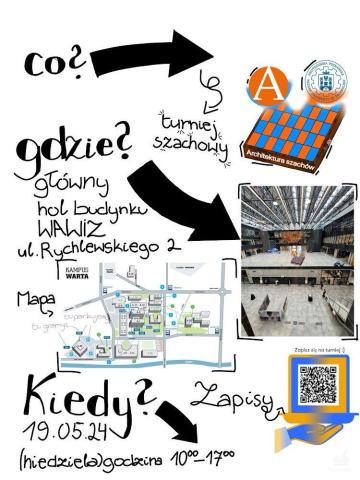 co?
turniej
szachowy
A
Architektura szachów
gdzie?
główny
hol budynku
WAWIZ
ul. Rychlewskiego 2
KAMPUS
WARTA
Mapa
tu parkujemy
tu gramy
Kiedy?
19.05.24
(niedziela) godzina 10⁰⁰-17⁰⁰
Zapisy
Zapisz się na turniej :)